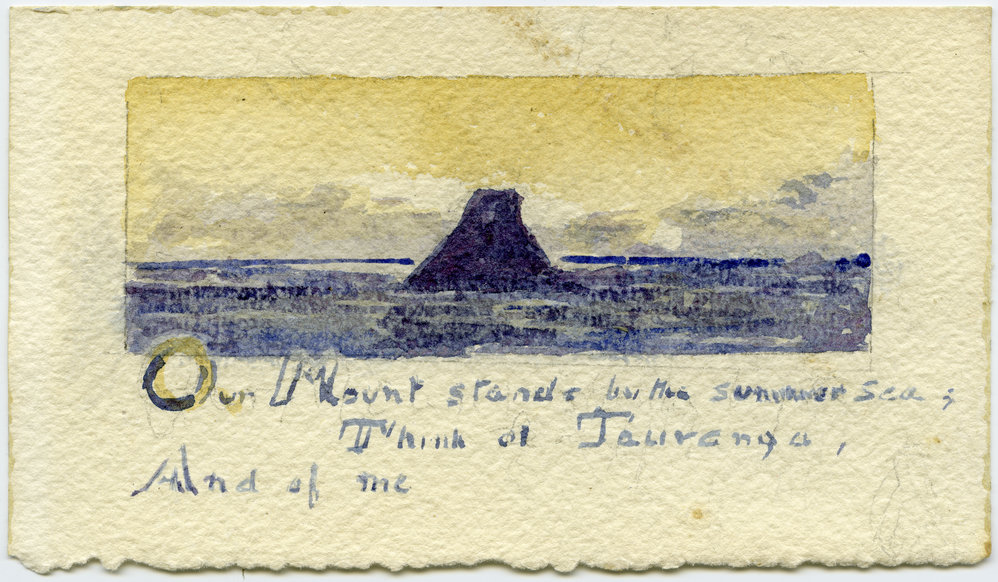 Our Mount stands by the summer sea;
Think of Tauranga,
And of me